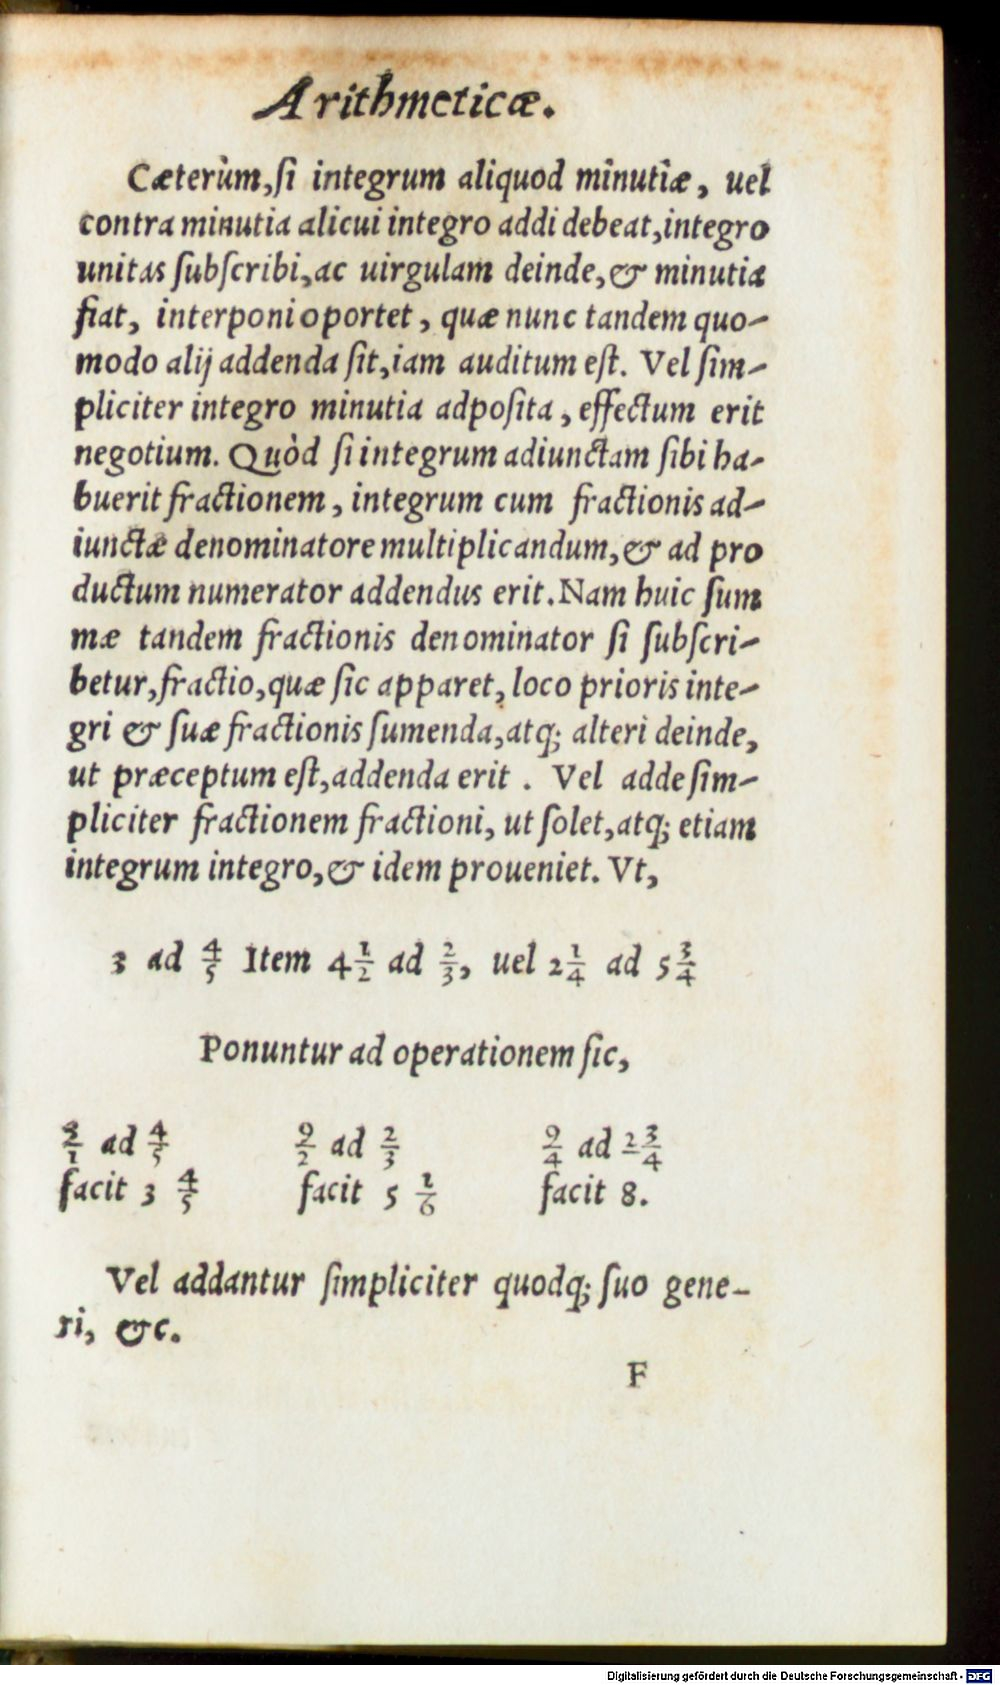 Arithmeticæ.
Cæterùm, ſi integrum aliquod minutiæ, uel
contra minutia alicui integro addi debeat, integro
unitas ſubſcribi, ac uirgulam deinde, & minutia
fiat, interponi oportet, quæ nunc tandem quo-
modo alij addenda ſit, iam auditum eſt. Vel ſim-
pliciter integro minutia adpoſita, effectum erit
negotium. Quòd ſi integrum adiunctam ſibi ha-
buerit fractionem, integrum cum fractionis ad-
iunctæ denominatore multiplicandum, & ad pro
ductum numerator addendus erit. Nam huic ſum
mæ tandem fractionis denominator ſi ſubſcri-
betur, fractio, quæ ſic apparet, loco prioris inte-
gri & ſuæ fractionis ſumenda, atq; alteri deinde,
ut præceptum eſt, addenda erit. Vel adde ſim-
pliciter fractionem fractioni, ut ſolet, atq; etiam
integrum integro, & idem proueniet. Vt,
3 ad 4/5 Item 4 1/2 ad 2/3, uel 2 1/4 ad 5 3/4
Ponuntur ad operationem ſic,
3/1 ad 4/5 9/2 ad 2/3 9/4 ad 23/4
facit 3 4/5 facit 5 1/6 facit 8.
Vel addantur ſimpliciter quodq; ſuo gene-
ri, &c.
F
Digitalisierung gefördert durch die Deutsche Forschungsgemeinschaft - DFG